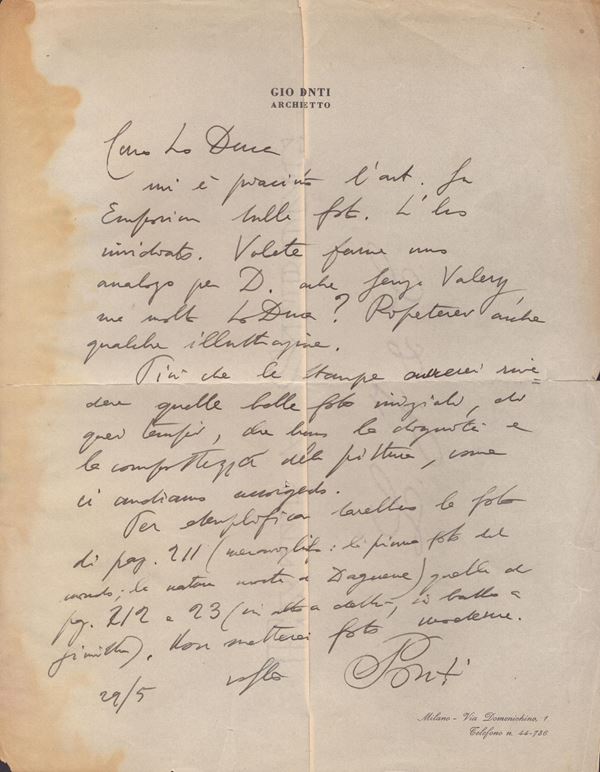 GIO DNTI
ARCHIETTO
Caro Lo Duca
mi è piaciuto l'art. su
Emporium sulle fot. L'ho
invidiato. Volete farne uno
analogo per D. anche senza Valery,
ma molto LoDuca? Ripeterei anche
qualche illustrazione.
Più che le stampe rive=
dere quelle belle foto iniziali, di
quei tempi, che hanno la dignità e
la compostezza della pittura, come
ci andiamo accorgendo.
Per esemplificare sarebbero le foto
di pag. 211 (meraviglia: la prima foto del
mondo; la natura morta di Daguerre) quelle di
pag. 212 e 23 (in alto a destra, in basso a
sinistra). Non metterei foto moderne.
vostro Ponti
29/5
Milano - Via Domenichino, 1
Telefono n. 44-736